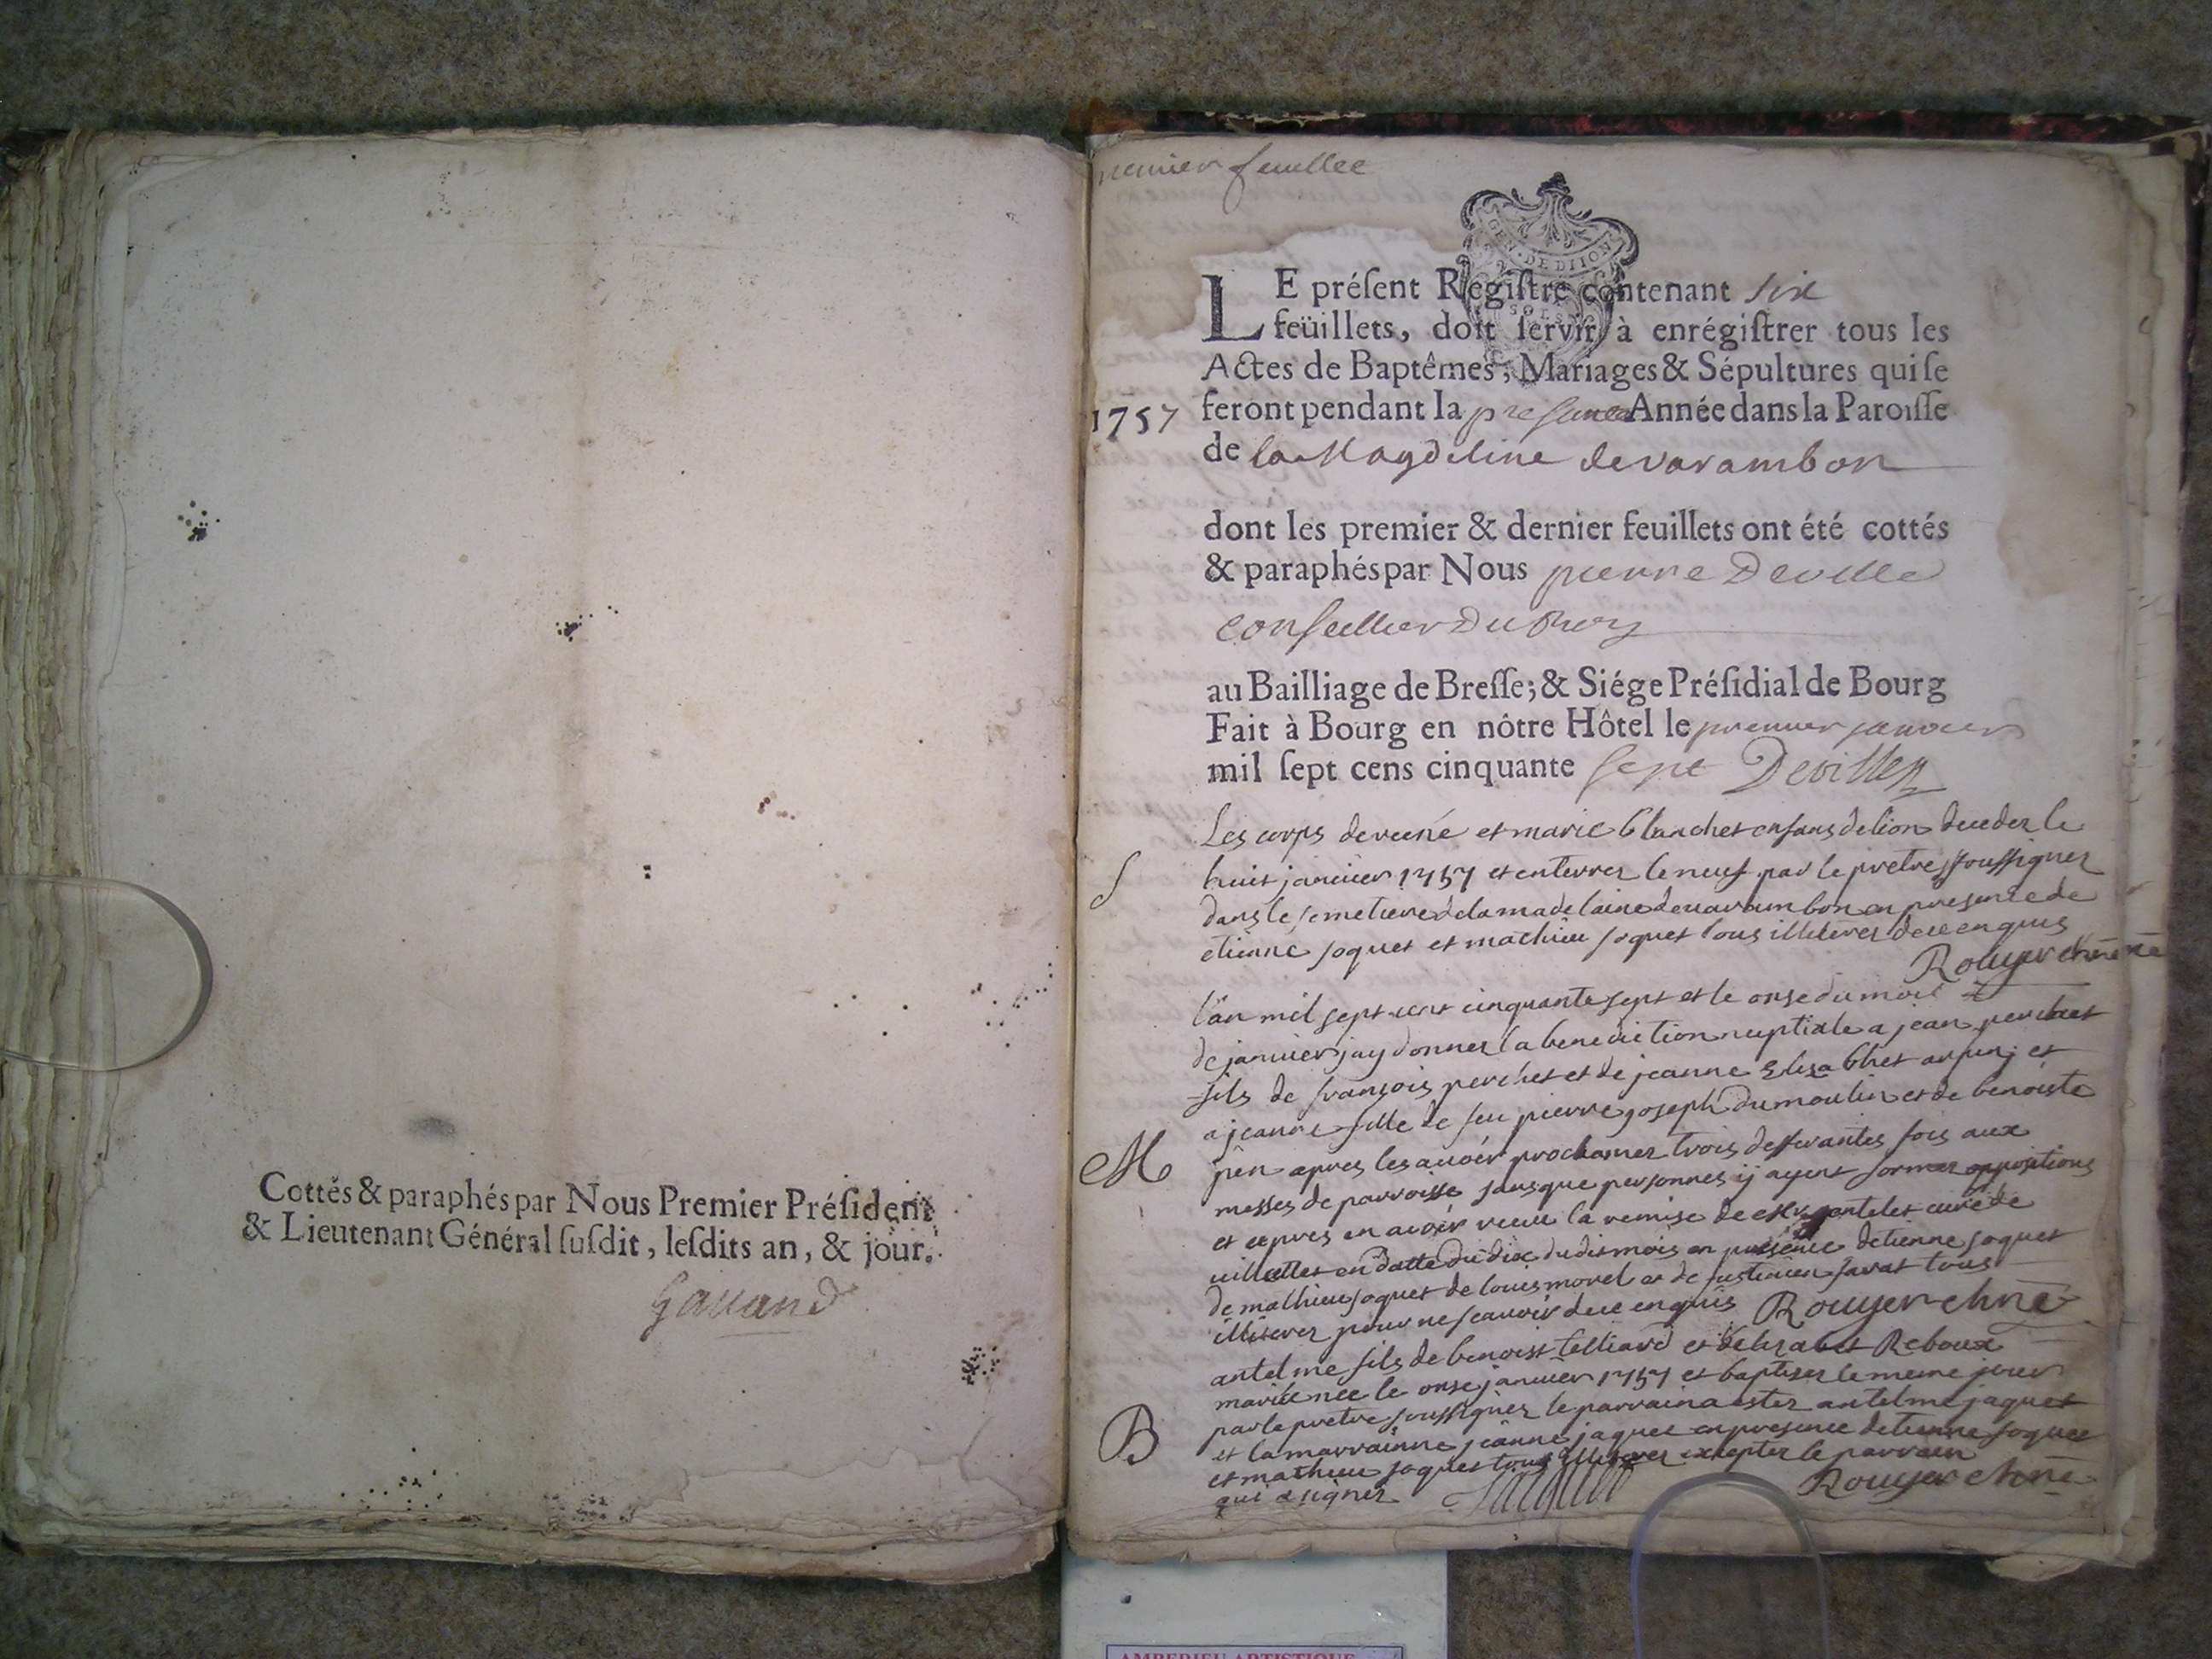 Cottés & paraphés par Nous Premier Préſident
& Lieutenant Général ſuſdit, leſdits an, & jour.
Gauand
premier feuillee
GEN. DE DIION
LE préſent Regiſtre contenant six
feüillets, doit ſervir à enrégiſtrer tous les
Actes de Baptêmes, Mariages & Sépultures qui ſe
1757
feront pendant la presente Année dans la Paroiſſe
de la Magdeline de varambon
dont les premier & dernier feuillets ont été cottés
& paraphés par Nous pierre Deville
conseillier Du Roy
au Bailliage de Breſſe; & Siége Préſidial de Bourg
Fait à Bourg en nôtre Hôtel le premier janvier
mil ſept cens cinquante sept Deville
Les corps de et marie blanchet enfans de lion deceder le
S
huit janvier 1757 et enterrez le neuf par le pretre soussignez
dans le semetiere de la madelaine de varambon en presente de
etienne joquet et mathieu joquet tous illiterez de ce enquis
Rouyer
l'an mil sept cent cinquante sept et le onse du mois
de janvier jay donner la benediction nuptiale a jean perchet
fils de françois perchet et de jeanne Elisabhet et
a jeanne fille de feu pierre joseph dumoulin et de benoiste
M
pin apres les avoir proclamer trois fois aux
messes de parroisse sans que personnes ij ayent former oppositions
et apres en avoir receu la remise de curé de
en datte du dix dudit mois en presence detienne joquet
de mathieu joquet de louis morel et de tous
illiterez pour ne scavoir de ce enquis Rouyer
antelme fils de benoist et Reboux
mariée née le onse janvier 1757 et baptiser le meme jour
B
par le pretre soussignez le parrain a ester antelme jaquet
et la marrainne jeanne jaquet en presence detienne joquet
et mathieu joquet tous illiterez excepter le parrain
qui a signer Jaquet
Rouyer
AMBERIEU ARTISTIQUE